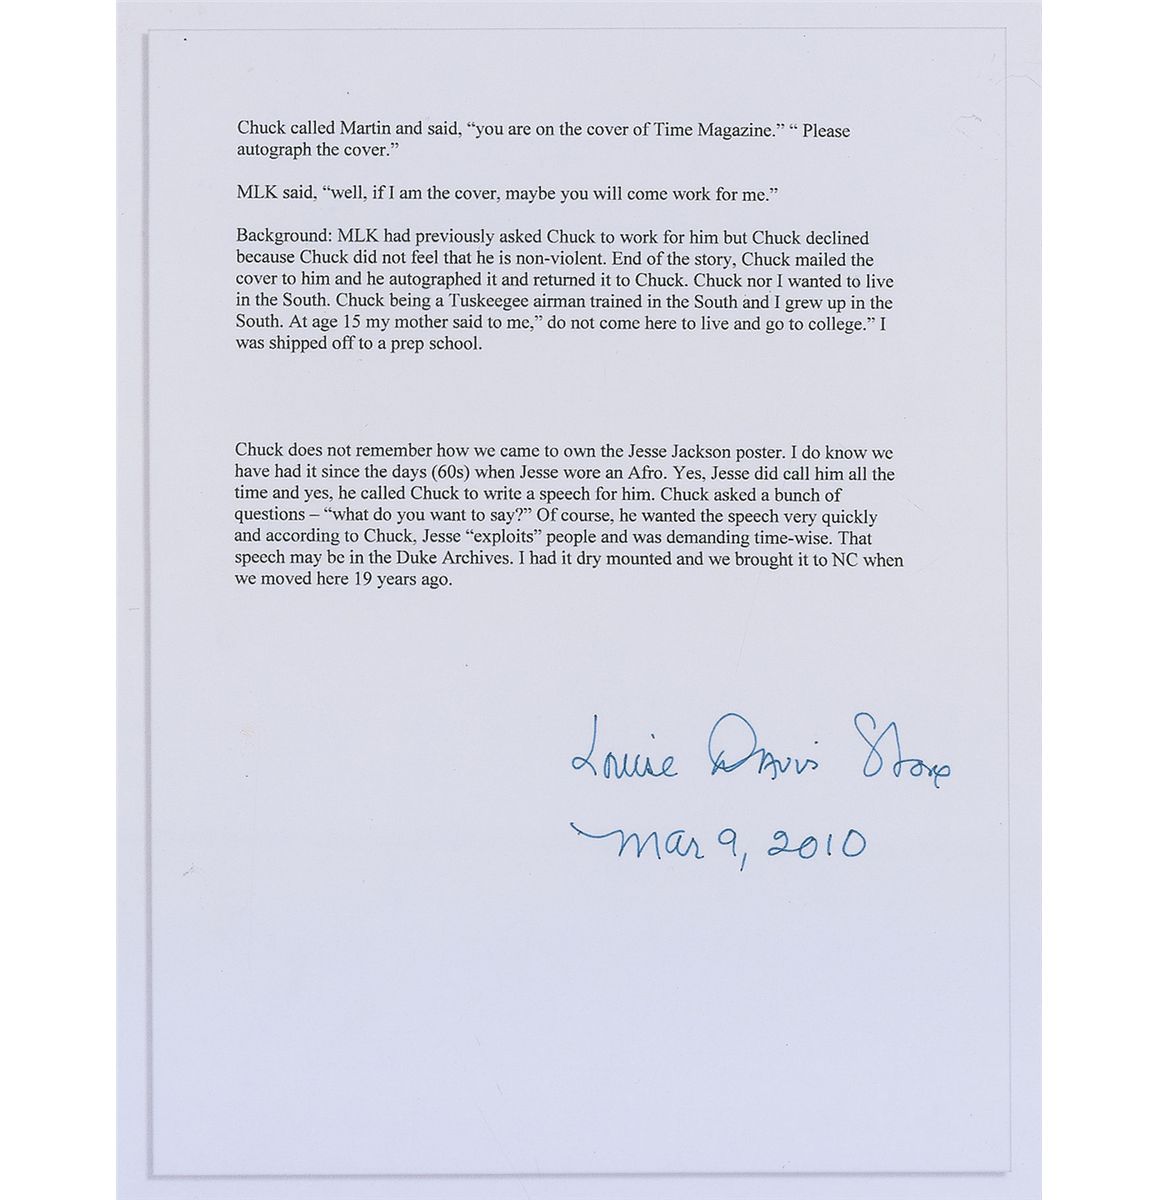 Chuck called Martin and said, “you are on the cover of Time Magazine.” “ Please
autograph the cover.”
MLK said, “well, if I am the cover, maybe you will come work for me.”
Background: MLK had previously asked Chuck to work for him but Chuck declined
because Chuck did not feel that he is non-violent. End of the story, Chuck mailed the
cover to him and he autographed it and returned it to Chuck. Chuck nor I wanted to live
in the South. Chuck being a Tuskeegee airman trained in the South and I grew up in the
South. At age 15 my mother said to me,” do not come here to live and go to college.” I
was shipped off to a prep school.
Chuck does not remember how we came to own the Jesse Jackson poster. I do know we
have had it since the days (60s) when Jesse wore an Afro. Yes, Jesse did call him all the
time and yes, he called Chuck to write a speech for him. Chuck asked a bunch of
questions – “what do you want to say?” Of course, he wanted the speech very quickly
and according to Chuck, Jesse “exploits” people and was demanding time-wise. That
speech may be in the Duke Archives. I had it dry mounted and we brought it to NC when
we moved here 19 years ago.
Louise Davis Stone
Mar 9, 2010